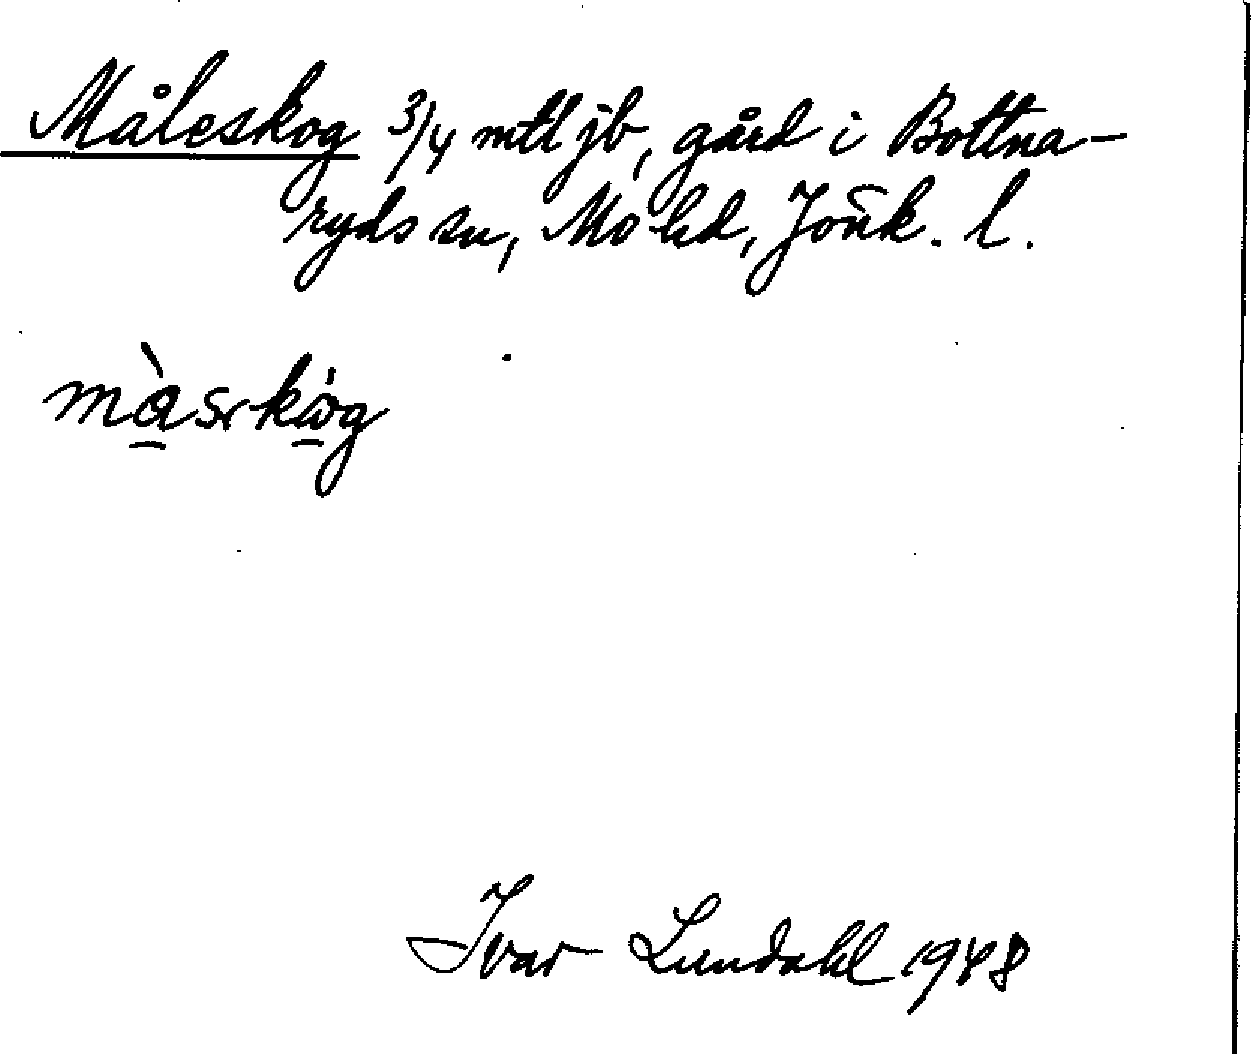 Måleskog 3/4 mtl jb, gård i Bottna-
ryds sn, Mo hd, Jönk. l.
Ivar Lundahl 1948